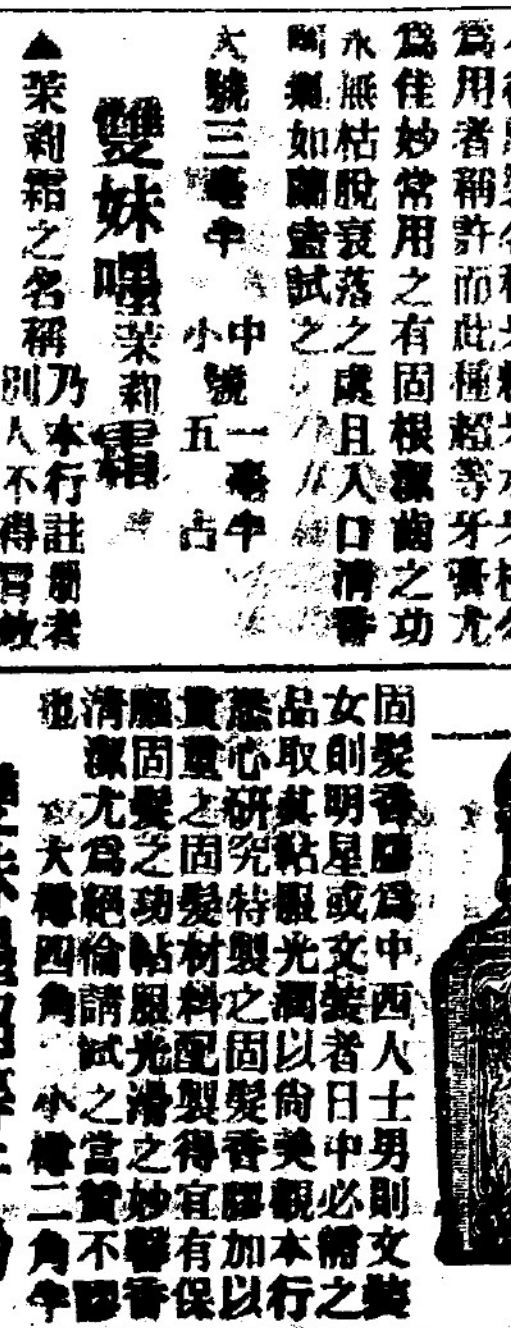 爲用者稱許而此種超等牙膏尤
爲佳妙常用之有固根潔齒之功
永無枯脫衰落之虞且入口清香
如蘭盍試之
大號三毫半
中號一毫半
小號五占
雙妹嚜茉莉霜
▲茉莉霜之名稱乃本行註册者
別人不得冒效
固髮香膠爲中西人士男則文裝
女則明星或文裝者日中必需之
品取其帖服光潤以尙美觀本行
悉心研究特製之固髮香膠加以
貴重之固髮材料配製得宜有保
固髮之功帖服光滑之妙馨香
清潔尤爲絕倫請試之當贊不謬
也
大樽四角
小樽二角半